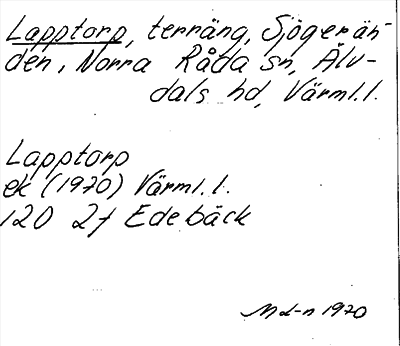 Lapptorp, terräng, Sjögerän-
den, Norra Råda sn, Älv-
dals hd, Värml.l.
Lapptorp
ek (1970) Värml.l.
120 2f Edebäck
Md-n 1970